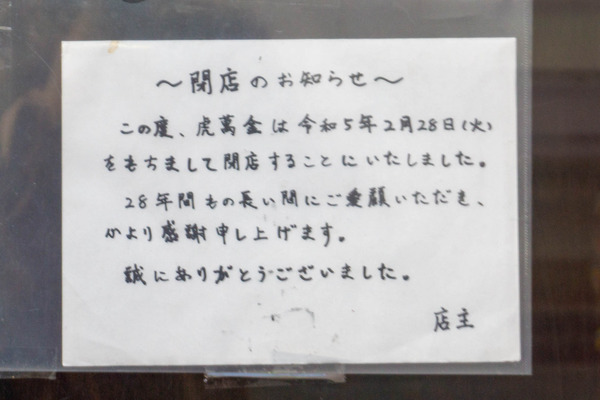 ～閉店のお知らせ～
この度、虎萬金は令和5年2月28日(火)
をもちまして閉店することにいたしました。
28年間もの長い間にご愛顧いただき、
心より感謝申し上げます。
誠にありがとうございました。
店主